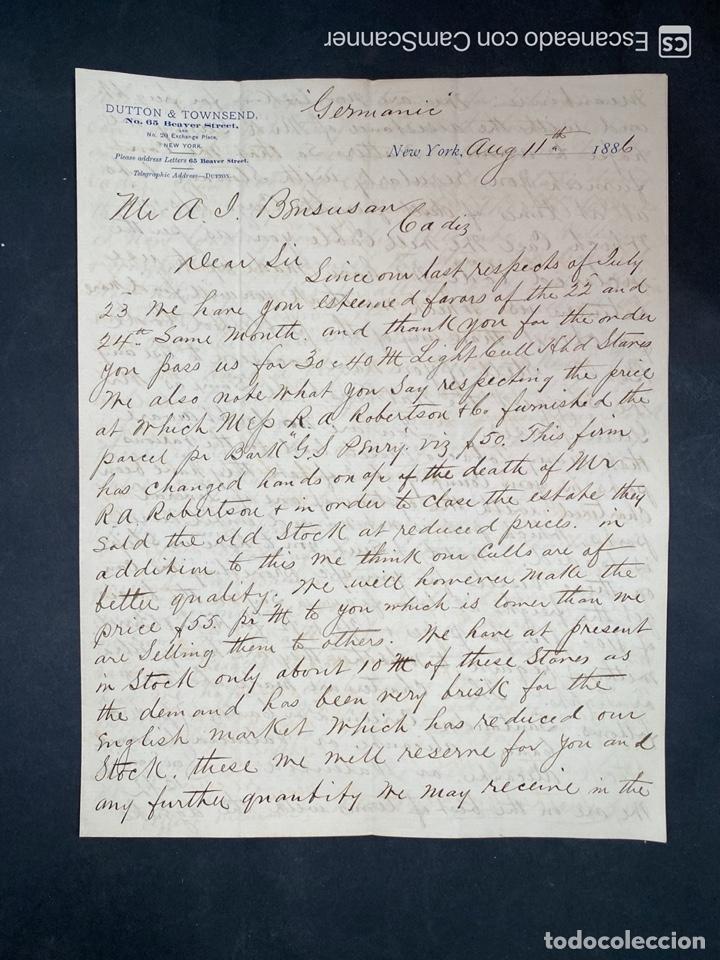 Escaneado con CamScanner
CS
"Germanic"
DUTTON & TOWNSEND,
No. 65 Beaver Street,
AND
No. 20 Exchange Place,
NEW YORK.
Please address Letters 65 Beaver Street.
Telegraphic Address—DUTTON.
New York, Aug 11th 1886
Mr A. J. Bensusan
Cadiz
Dear Sir
Since our last respects of July
23 We have your esteemed favors of the 22d and
24th Same Month. and thank you for the order
you pass us for 30 @ 40 M Light Cull Hhd Staves
We also note what you Say respecting the price
at Which Mess R. A. Robertson & Co. furnished the
parcel pr Bark "G. S. Penry" viz $50. This firm
has changed hands on a/c of the death of Mr
R A. Robertson & in order to close the estate they
Sold the old Stock at reduced prices. in
addition to this we think our Culls are of
better quality. We will however make the
price $55. pr M to you which is lower than we
are Selling them to others. We have at present
in Stock only about 10 M of these Staves as
the demand has been very brisk for the
English market Which has reduced our
Stock. these we will reserve for you and
any further quantity we may receive in the
todocoleccion